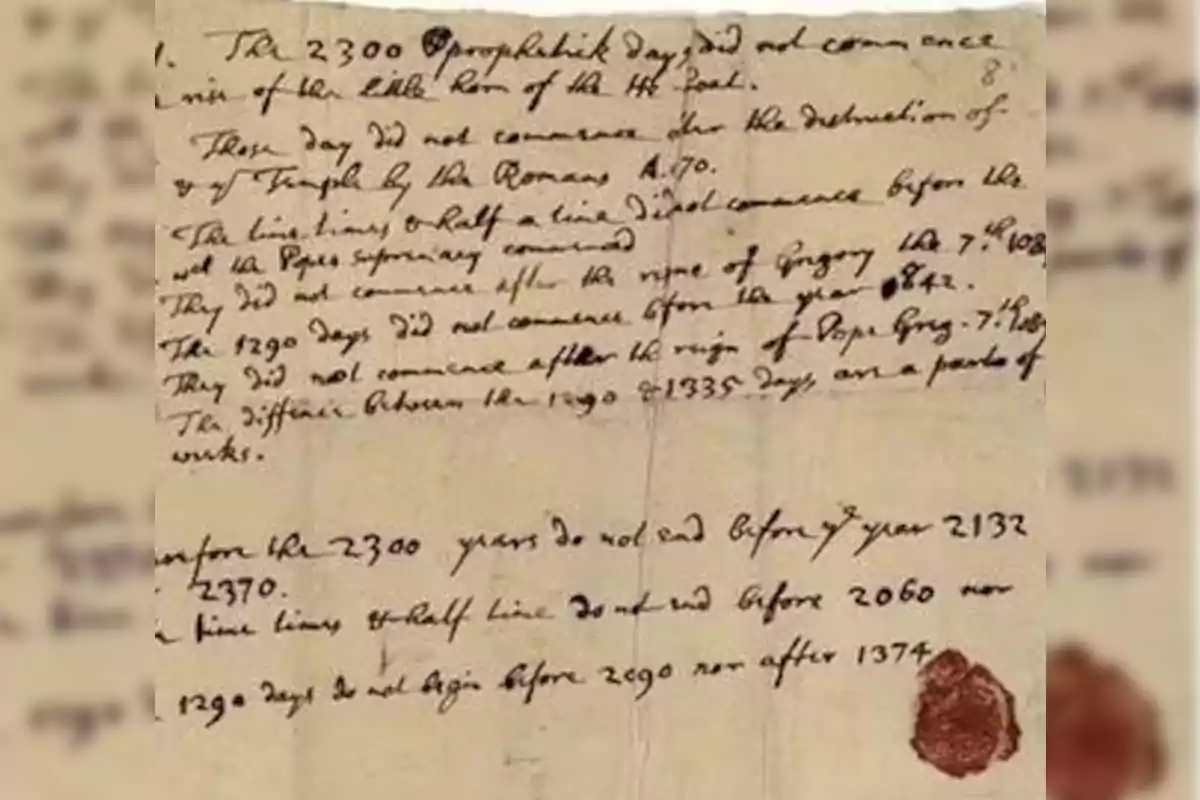 1. The 2300 prophetick days did not commence
rise of the little horn of the He Goat.
8
Those day did not commence after the destruction of
& ye Temple by the Romans A. 70.
The time times & half a time did not commence before the
wch the Popes supremacy commenced
They did not commence after the reigne of Gregory the 7.th 108
The 1290 days did not commence bfore the year 842.
They did not commence after the reign of Pope Greg. 7.th 108
The diffence between the 1290 & 1335 days are a parts of
weeks.
the 2300 years do not end before ye year 2132
2370.
time times & half time do not end before 2060 nor
1290 days do not begin before 2090 nor after 1374